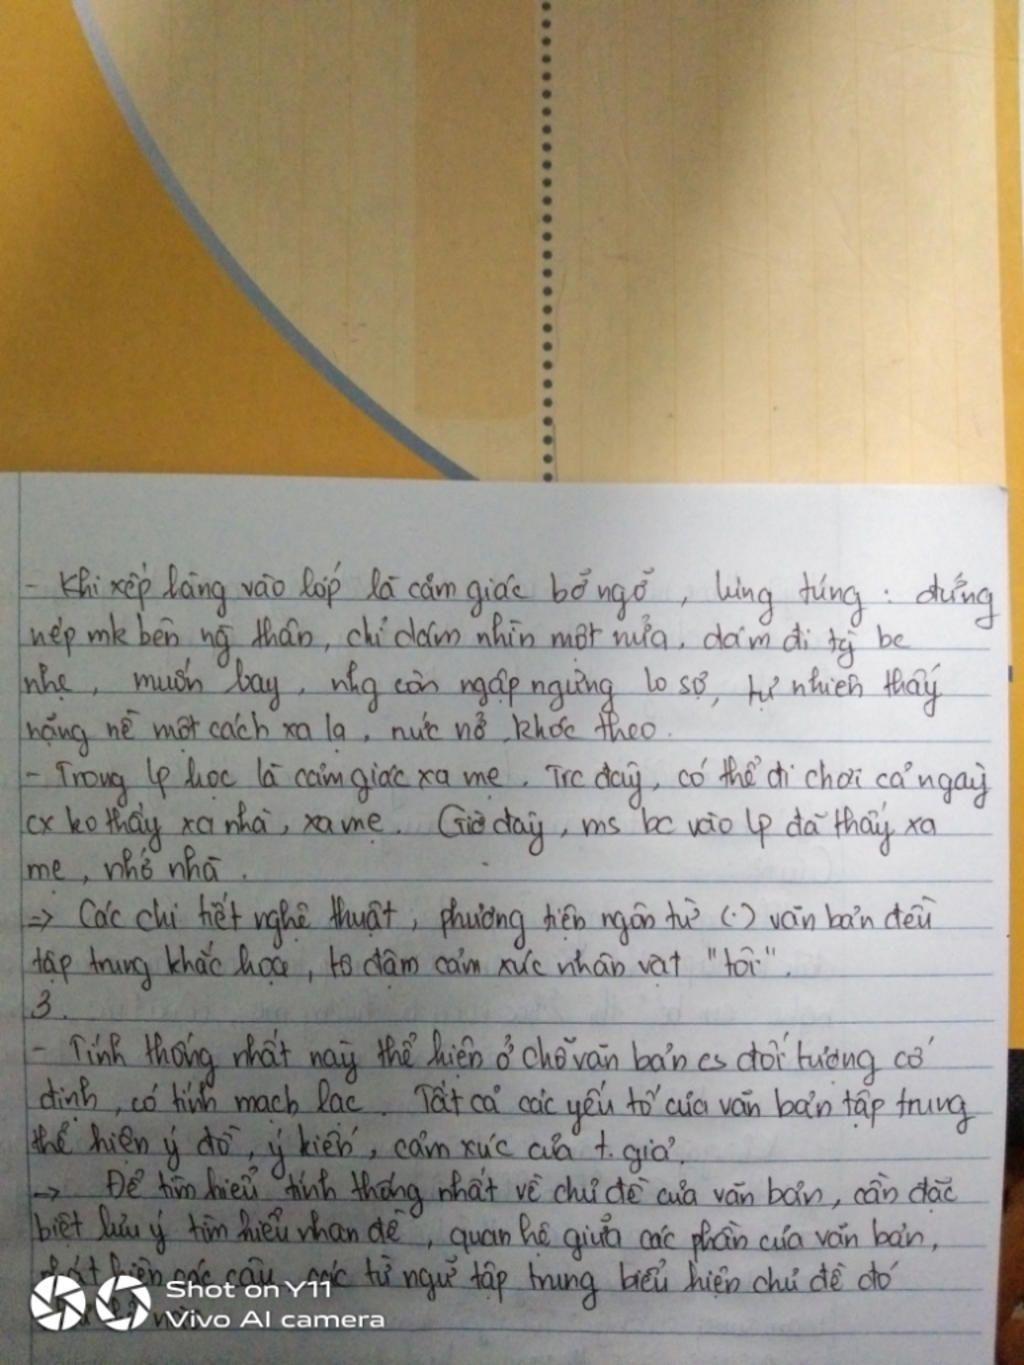 - Khi xếp hàng vào lớp là cảm giác bỡ ngỡ, lúng túng: đứng
nép mk bên ng thân, chỉ dám nhìn một nửa, dám đi từng bc
nhẹ, muốn bay, nhg còn ngập ngừng lo sợ, tự nhiên thấy
nặng nề một cách xa lạ, nức nở khóc theo.
- Trong lp học là cảm giác xa mẹ. Trc đây, có thể đi chơi cả ngày
cx ko thấy xa nhà, xa mẹ. Giờ đây, ms bc vào lp đã thấy xa
mẹ, nhớ nhà.
=> Các chi tiết nghệ thuật, phương tiện ngôn từ (.) văn bản đều
tập trung khắc họa, tô đậm cảm xúc nhân vật "tôi".
3.
- Tính thống nhất này thể hiện ở chỗ văn bản cs đối tượng cố
định, có tính mạch lạc. Tất cả các yếu tố của văn bản tập trung
thể hiện ý đồ, ý kiến, cảm xúc của t. giả.
-> Để tìm hiểu tính thống nhất về chủ đề của văn bản, cần đặc
biệt lưu ý tìm hiểu nhan đề, quan hệ giữa các phần của văn bản,
phát hiện các câu, các từ ngữ tập trung biểu hiện chủ đề đó
Shot on Y11
Vivo AI camera